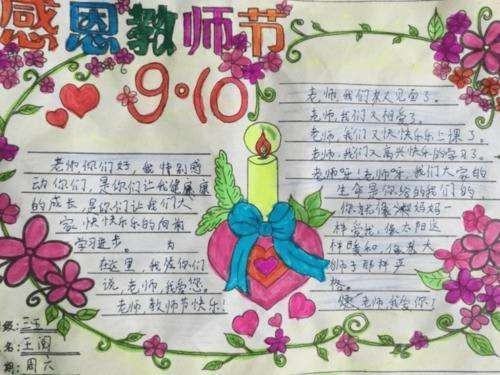 感恩教师节
9·10
老师你们好，我特别感
动你们，是你们让我健康
的成长，是你们让我们大
家快快乐乐的向前
学习进步。为
在这里，我在你们
说，老师，我爱您，
老师，教师节快乐！
老师，我们又见面了。
老师，我们又相聚了。
老师，我们又快快乐乐上课了。
老师，我们又高兴快乐的学习了。
老师呀！老师呀，我们大家的
生命是你给的我们的
你就像妈妈一
样爱我，像太阳这
样暖和，像
狮子那样严
格。
老师，我爱你了！
级：二
名：王
期：周六